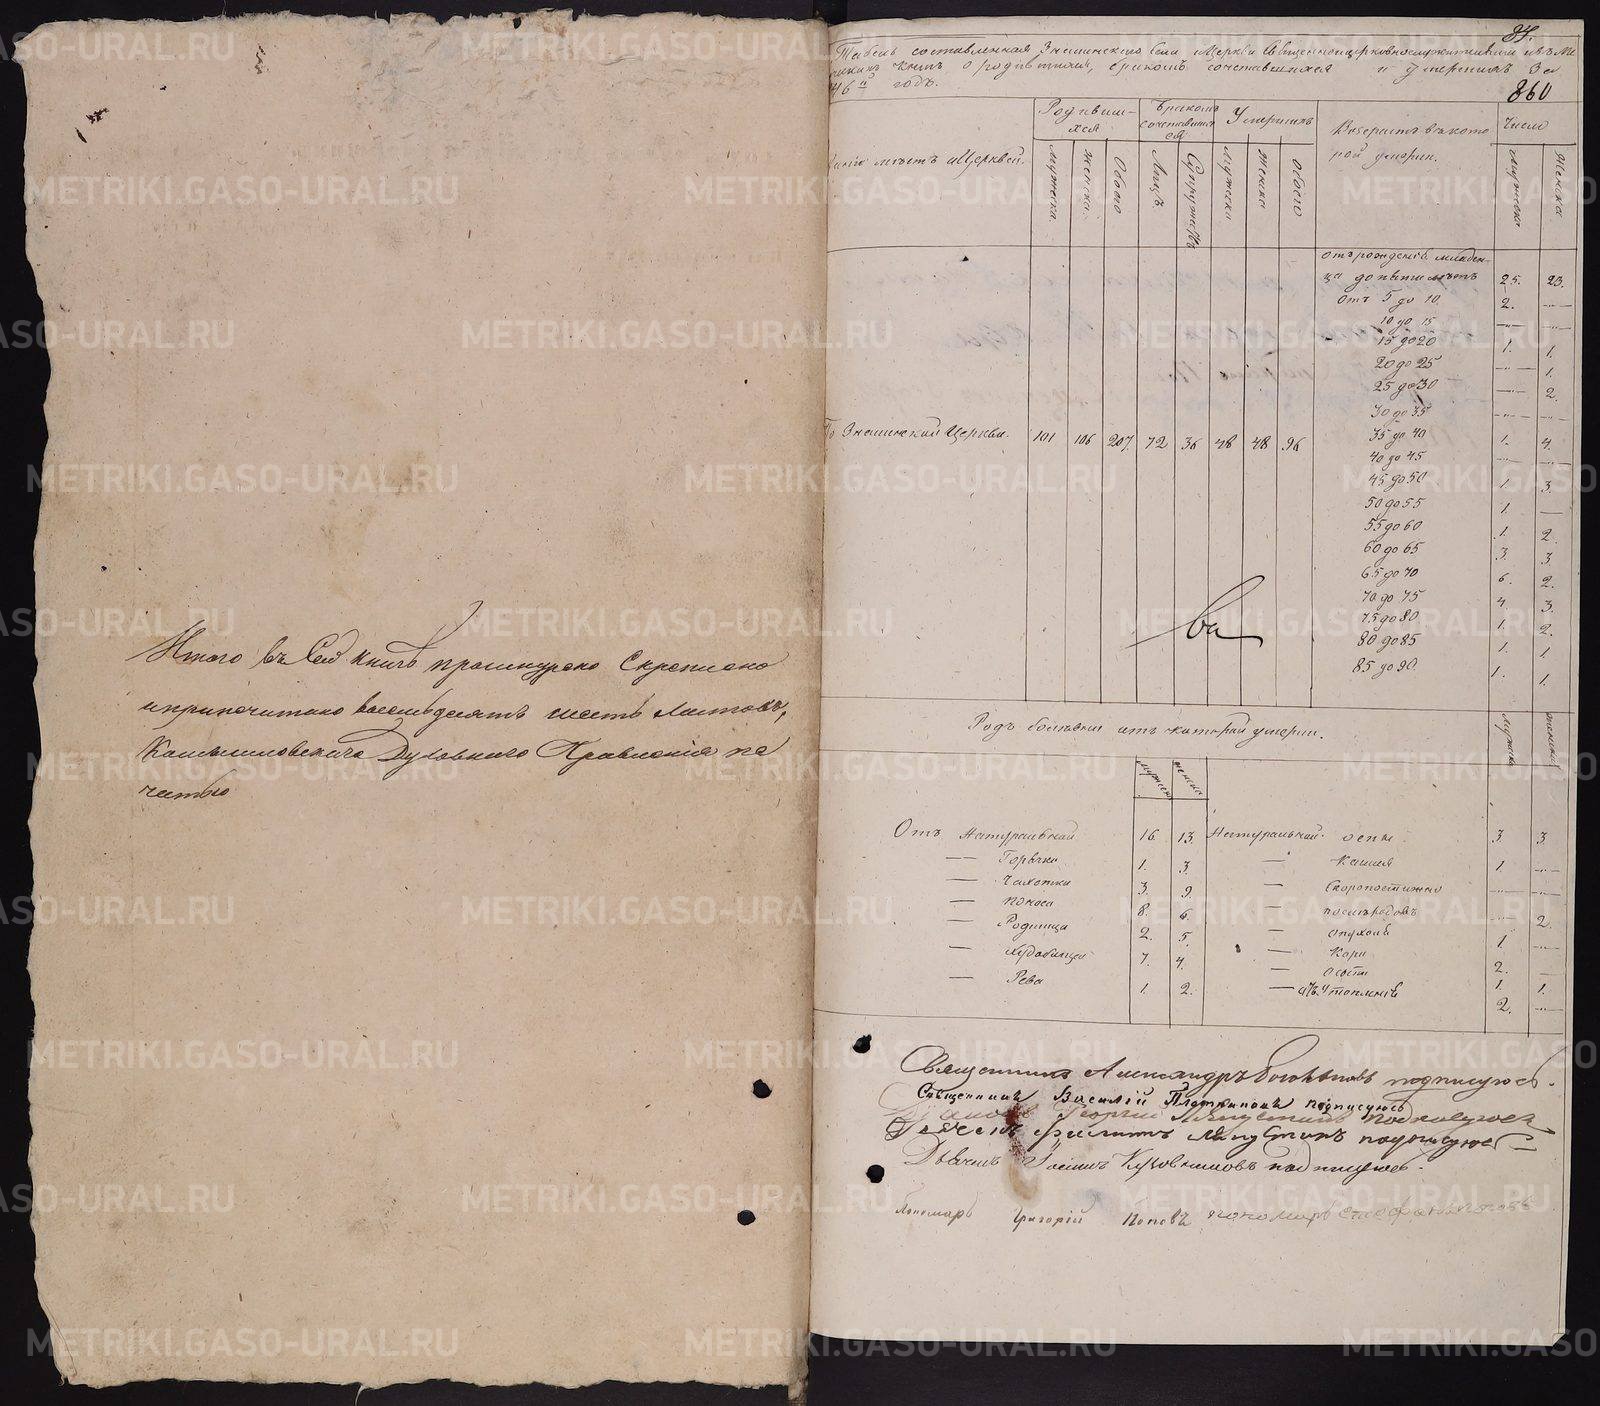 Итого въ сей книге прошнурено скреплено
и припечатано восемьдесятъ шесть листовъ,
Камышловскаго Духовнаго Правленія пе
чатью
87.
860
Табель составленная Знаменскаго Села Церкви Священноцерковнослужителями изъ Ме
книгъ о родившихся, бракомъ сочетавшихся и умершихъ За
46й годъ.
мѣстъ и Церквей.
Родивших-
хся
Бракомъ
сочетавших
ся
Умершихъ
Возрастъ въ кото
рой умерли.
Число
Мужеска
Женска
Обоего
Лицъ
Супружествъ
Мужеска
Женска
Обоего
Мужеска
Женска
Отъ рожденія младен-
ца до пяти лѣтъ 25. 23.
Отъ 5 до 10. 2. —
10 до 15 — —
15 до 20 1. 1.
20 до 25 — 1.
25 до 30 — 2.
30 до 35 — —
Знаменской Церкви. 101 106 207. 72 36 48 48 96
35 до 40 1. 4.
40 до 45 — —
45 до 50 1. 3.
50 до 55 1. —
55 до 60 1. 2.
60 до 65 3. 3.
65 до 70 6. 2.
70 до 75 4. 3.
75 до 80 1. 2.
80 до 85 1. 1.
85 до 90. 1. 1.
Родъ болѣзни отъ которой умерли.
Мужеска
Женска
Мужеска
Женска
Отъ Натуральной 16. 13. Натуральной оспы 3. 3.
— Горячки 1. 3. — Кашля 1. —
— Чахотки 3. 9. — Скоропостижно — —
— Поноса 8. 6. — послѣ родовъ — 2.
— Родимца 2. 5. — опухоли 1. —
— 7. 4. — Кори 2. —
— Рева 1. 2. — 1. 1.
— отъ утопленія 2. —
Священникъ Александръ подписуюсь.
Священникъ Василій подписуюсь
Діаконъ Георгій подписуюсь
Дьячекъ Филиппъ подписуюсь
Дьячекъ подписуюсь.
Пономарь Григорій Поповъ пономарь Стефанъ Поповъ
METRIKI.GASO-URAL.RU